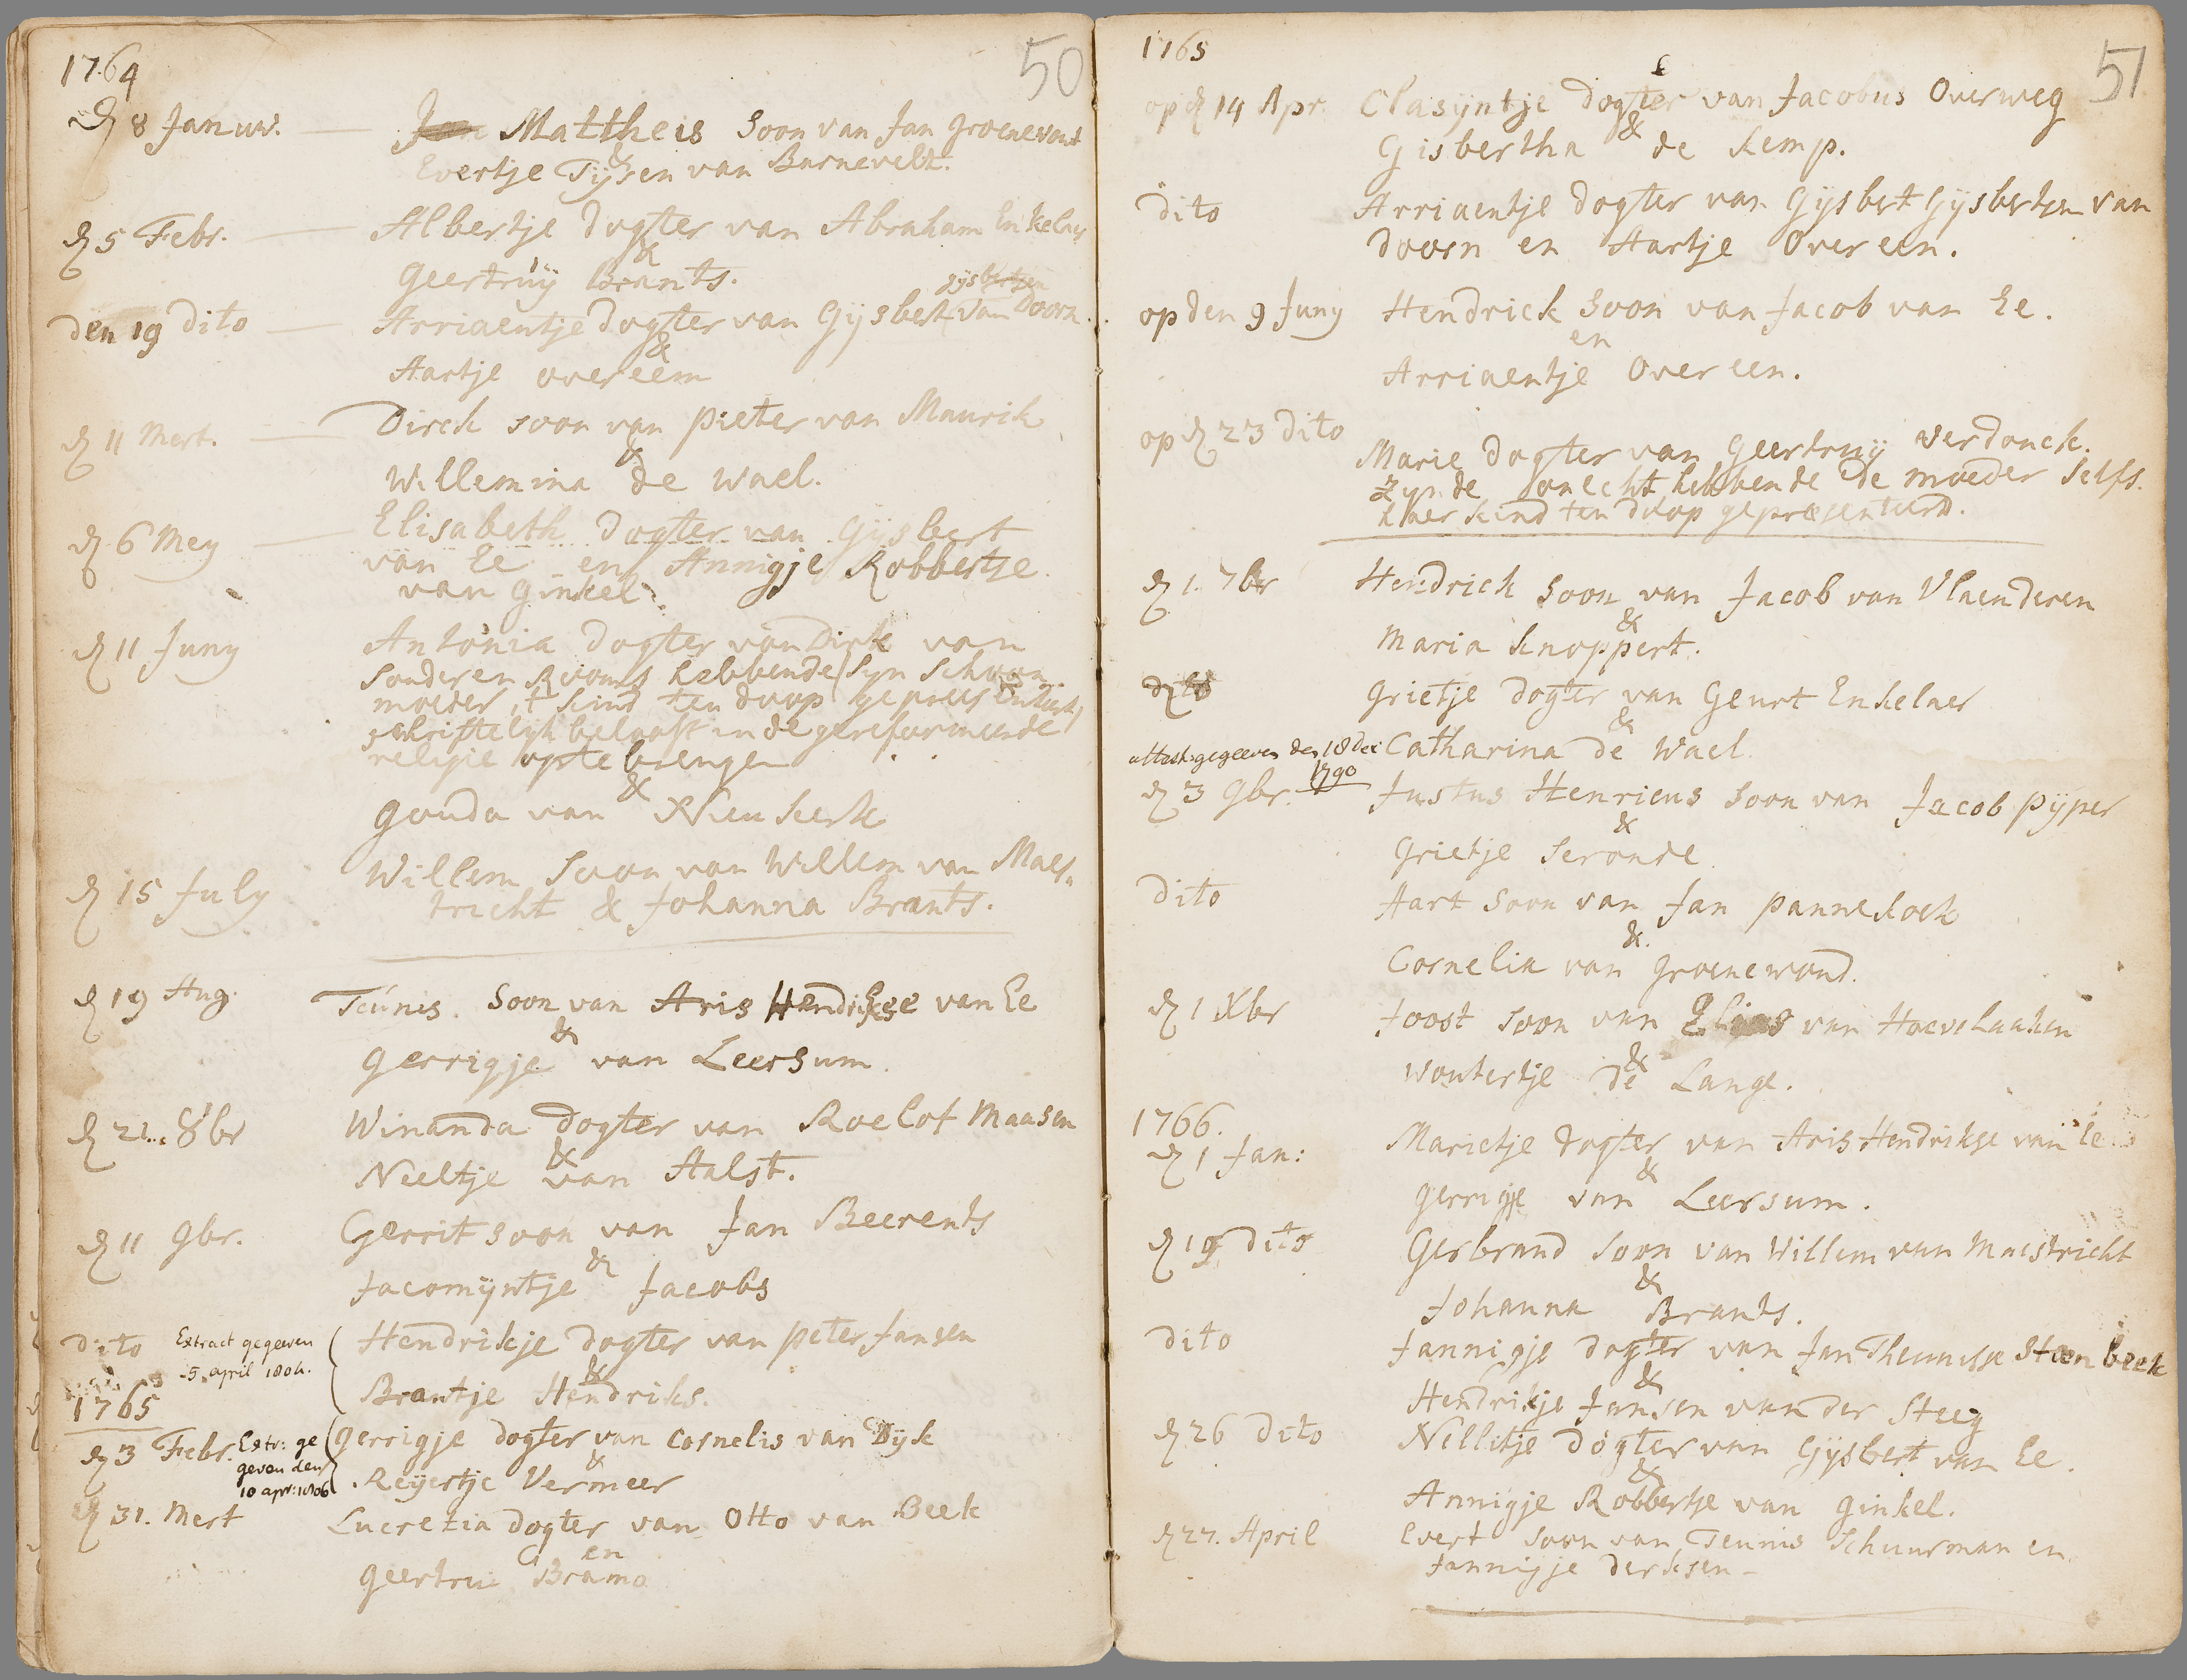 1764
50
d 8 Januw. Jan Mattheis soon van Jan groenewout
&
Evertje Tijsen van Barnevelt.
d 5 Febr. Albertje dogter van Abraham Enkelaer
&
Geertruÿ Brants.
gijsbertsen
den 19 dito Arriaentje dogter van Gijsbert van Doorn.
&
Aartje overeem
d 11 Mert. Dirck soon van pieter van Maurik
&
Willemina de Wael.
d 6 Mey Elisabeth dogter van Gijsbert
van Ee en Annigje Robbertse
van Ginkel.
d 11 Juny Antonia dogter van Dirk van
Sonderen Rooms hebbende syn Schoon
moeder 't kind ten doop gepresenteert,
schriftelyk belooft in de gereformeerde
religie op te brengen
&
Gonda van Nieukerk
d 15 July Willem Soon van Willem van Maes
tricht & Johanna Brants.
d 19 Aug. Teúnes. Soon van Aris Hendrikse van Ee
&
gerrigje van Leersum.
d 21.. 8br Winanda dogter van Roelof Maasen
&
Neeltje van Aalst.
d 11 9br. Gerrit soon van Jan Beerents
&
Jacomijntje Jacobs
dito Extract gegeeven Hendrikje dogter van peter Jansen
5 april 1804.
&
Brantje Hendriks.
1765
d 3 Febr. Extr: ge gerrigje dogter van Cornelis van Dijk
geven den &
10 apr: 1806 Reijertje Vermeer
d 31. Mert Lucretia dogter van Otto van Beek
en
geertrui Brama
1765
51
op d 14 Apr. Clasijntje dogter van Jacobus Overweg
&
Gisbertha de Kemp.
dito Arriaentje dogter van Gijsbert Gijsbertsen van
doorn en Aartje Overeen.
op den 9 Juny Hendrick soon van Jacob van Ee.
en
Arriaentje Overeen.
op d 23 dito
Marie dogter van Geertruÿ Verdonck.
zynde onecht hebbende de moeder selfs.
haer kind ten doop gepresenteerd.
d 1. 7br Hendrick soon van Jacob van Vlaenderen
&
Maria Knoppert.
dito Grietje dogter van Geurt Enkelaer
&
attest: gegeeven den 18 dec Catharina de Wael
1790
d 3 9br. Justus Henricus soon van Jacob pÿper
&
Grietje Seronde.
dito Aart soon van Jan pannekoek
&
Cornelia van Groenewoud.
d 1 Xbr Joost soon van Elias van Hoevelaaken
&
Woutertje de Lange.
1766.
d 1 Jan: Marietje dogter van Aris Hendrikse van Ee
&
Gerrigje van Leersum.
d 19 dito Gerbrand soon van Willem van Maestricht
&
Johanna Brants.
dito Jannigje dogter van Jan Theunisse Steenbeek
&
Hendrikje Jansen van der Steeg
d 26 dito Nellitje dogter van Gijsbert van Ee.
&
Annigje Robbertse van Ginkel.
d 27. April Evert soon van Teunis Schuurman en
Jannigje Derksen -